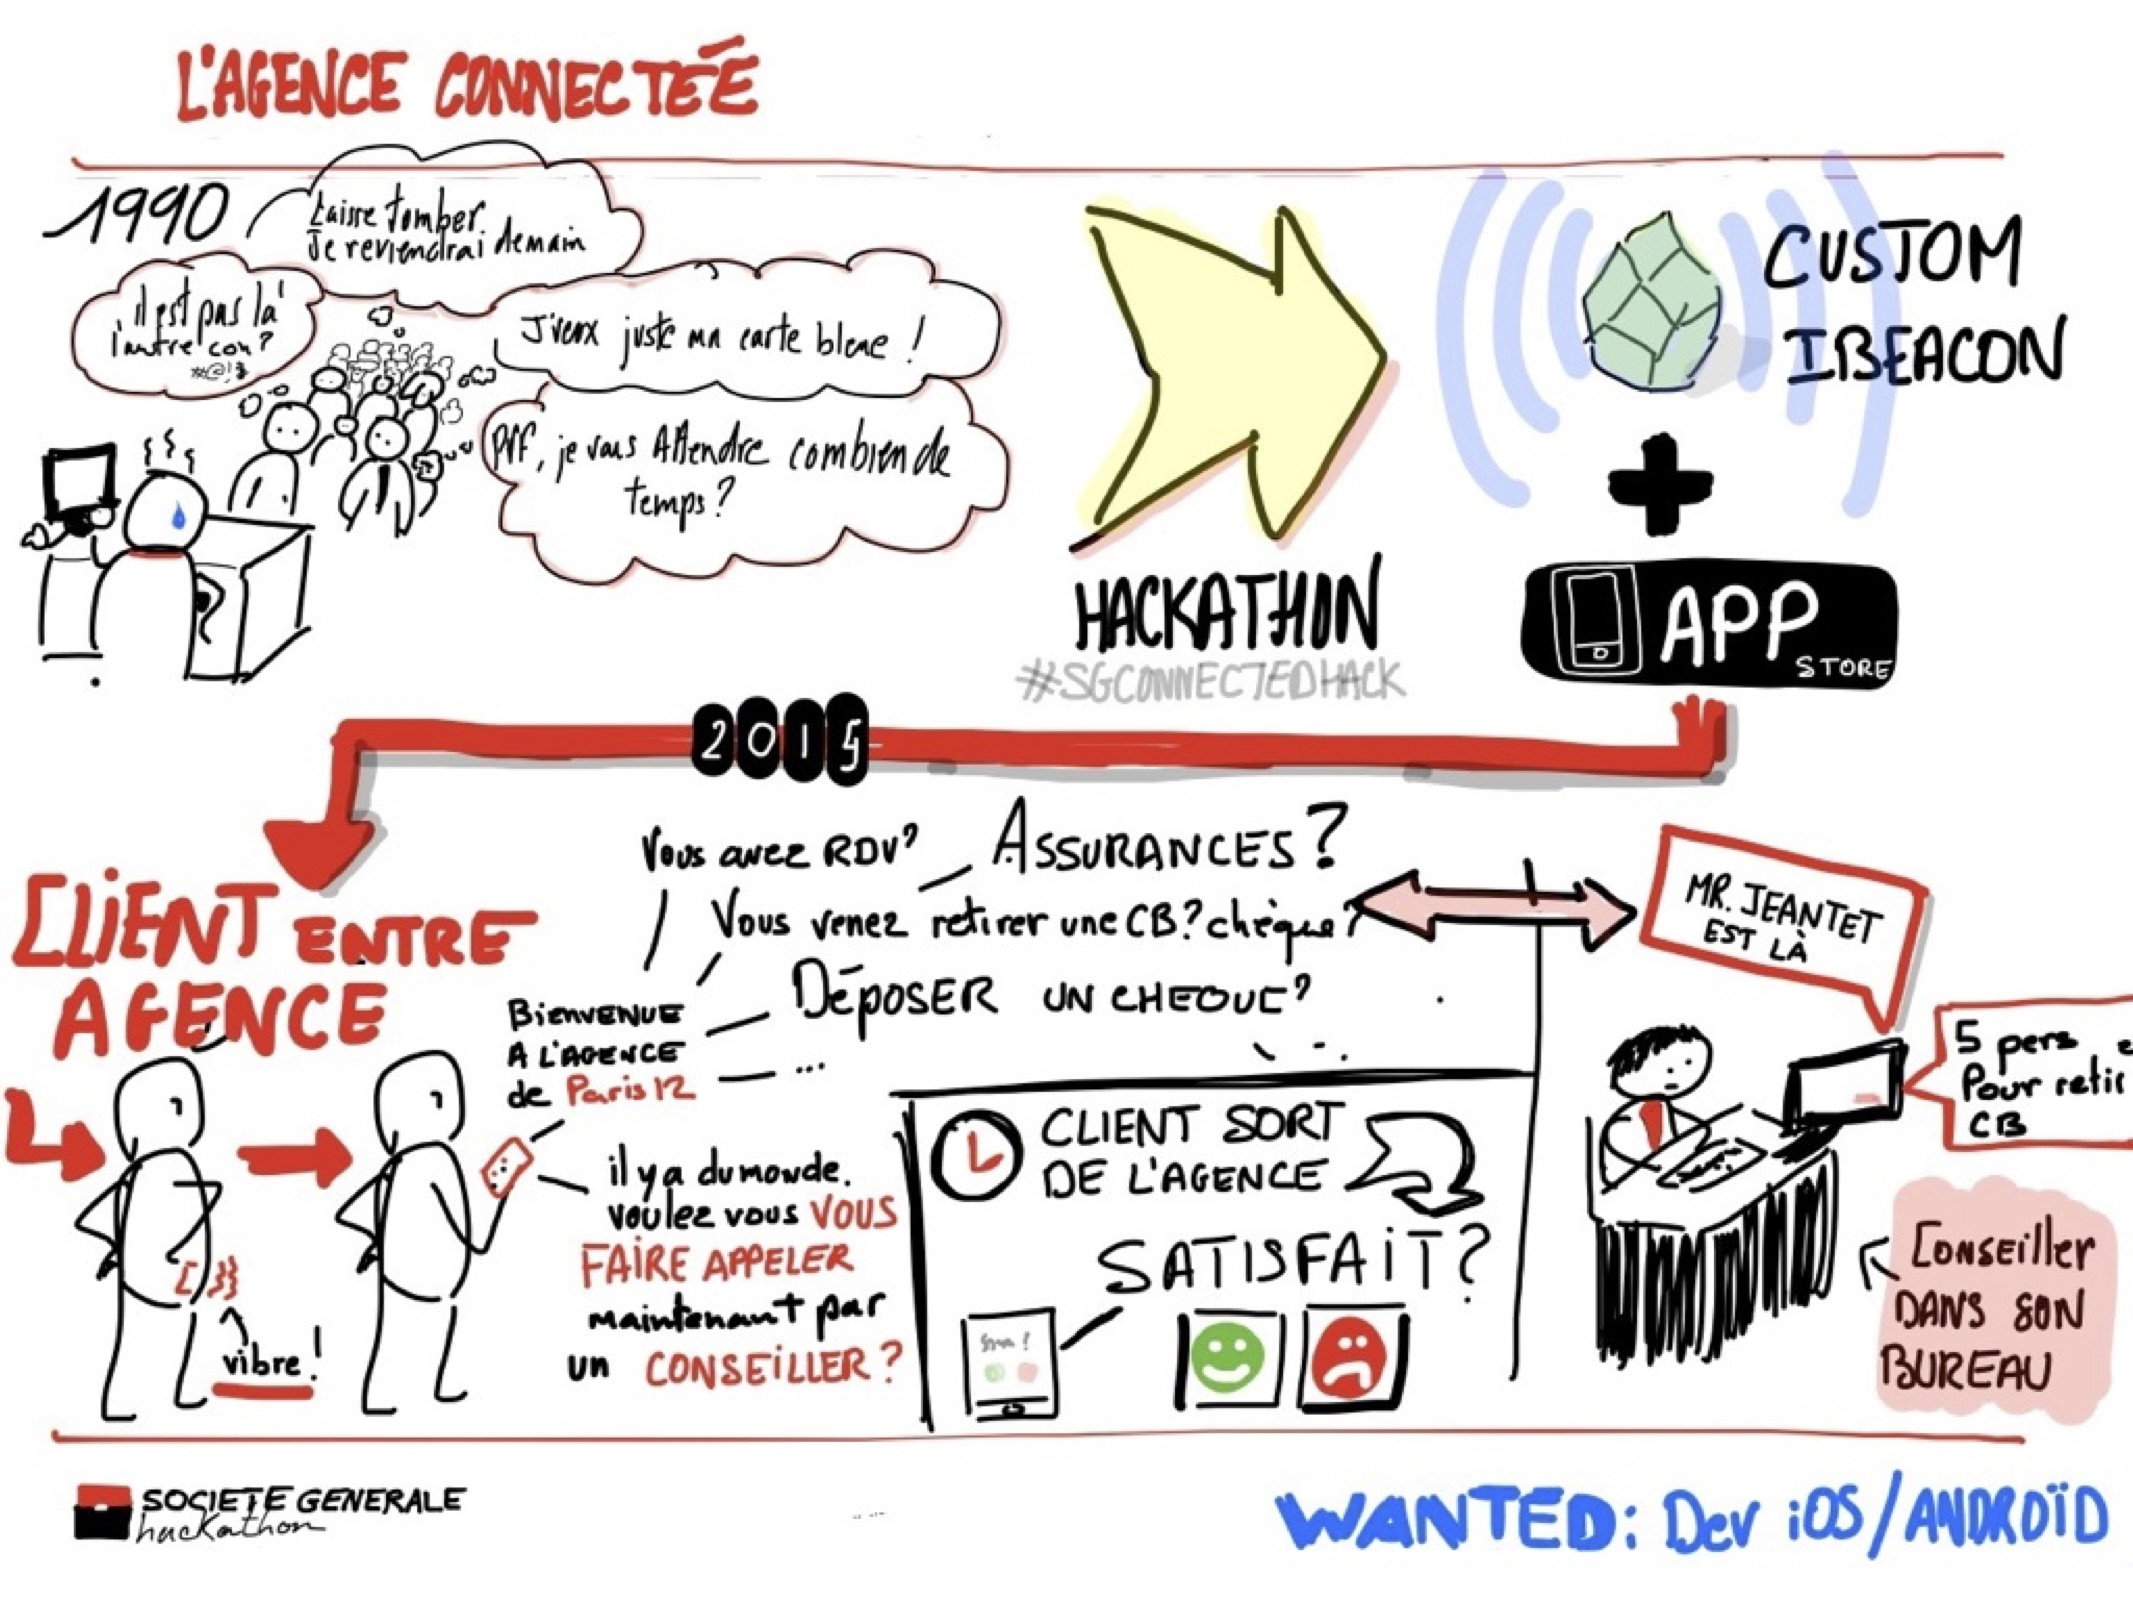 L'AGENCE CONNECTÉE
1990
Laisse tomber
Je reviendrai demain
il est pas là
l'autre con?
#@!$
J'veux juste ma carte bleue !
Pff, je vais Attendre combien de
temps?
HACKATHON
#SGCONNECTEDHACK
CUSTOM
IBEACON
+
APP
STORE
2015
CLIENT ENTRE
AGENCE
vibre!
Vous avez RDV?
ASSURANCES?
Vous venez retirer une CB? chèque?
DÉPOSER UN CHEQUE?
...
BIENVENUE
A L'AGENCE
de Paris 12
il y a du monde.
voulez vous VOUS
FAIRE APPELER
maintenant par
un CONSEILLER?
CLIENT SORT
DE L'AGENCE
SATISFAIT?
MR. JEANTET
EST LÀ
5 pers
Pour retir
CB
CONSEILLER
DANS SON
BUREAU
SOCIETE GENERALE
hackathon
WANTED: Dev iOS/ANDROÏD